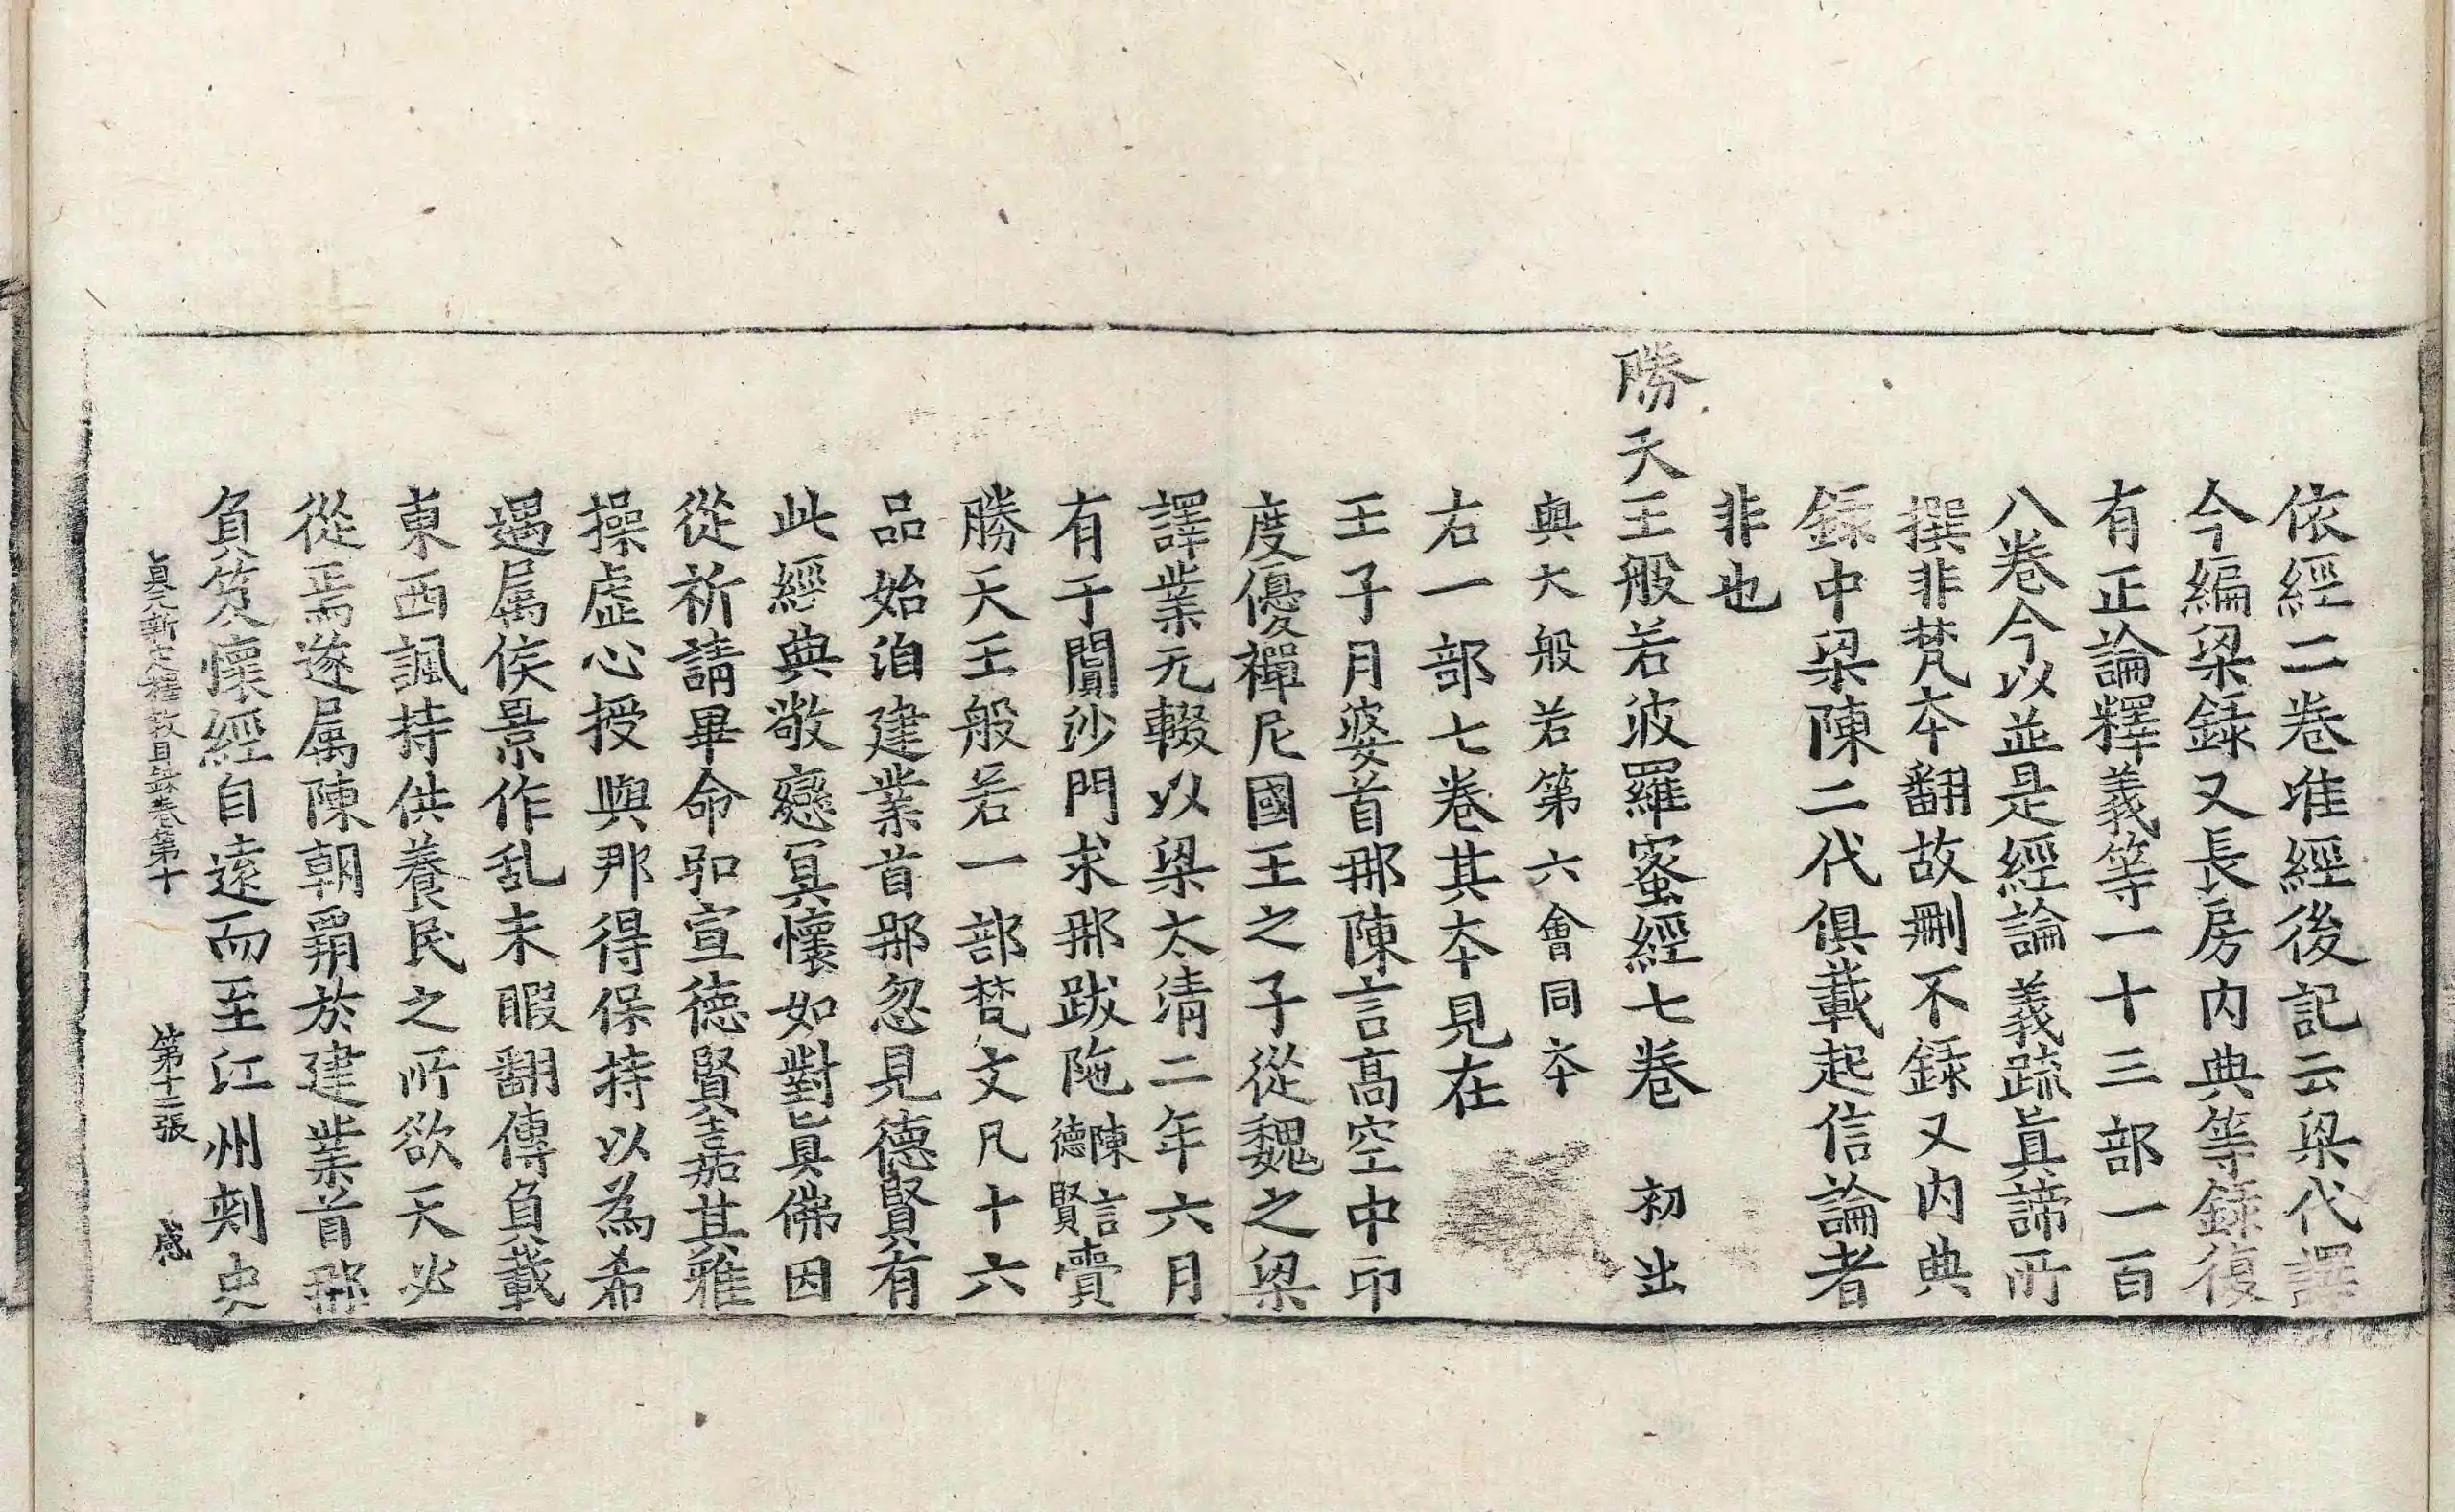 依經二卷准經後記云梁代譯
今編梁録又長房内典等録復
有正論釋義等一十三部一百
八卷今以並是經論義䟽眞諦所
撰非梵夲翻故刪不録又内典
録中梁陳二代俱載起信論者
非也
勝天王般若波羅蜜經七卷　初出
與大般若第六會同夲
右一部七卷其夲見在
王子月婆首那陳言高空中印
度優禪尼國王之子從魏之梁
譯業无輟以梁太清二年六月
有于闐沙門求那跋陁陳言德賢賷
勝天王般若一部梵文凡十六
品始洎建業首那忽見德賢有
此經典敬戀冥懷如對眞佛因
從祈請畢命弘宣德賢嘉其雅
操虛心授與那得保持以為希
遇属侯景作乱未暇翻傳負載
東西諷持供養民之所欲天必
從焉遂属陳朝霸於建業首那
負笈懷經自遠而至江州刾史
貞元新定釋敎目録卷第十　第十二張　感